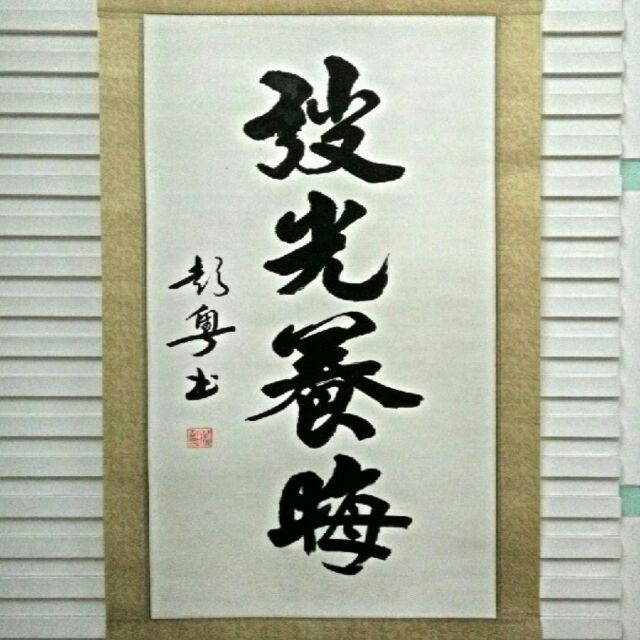 弢光養晦
彭粤书